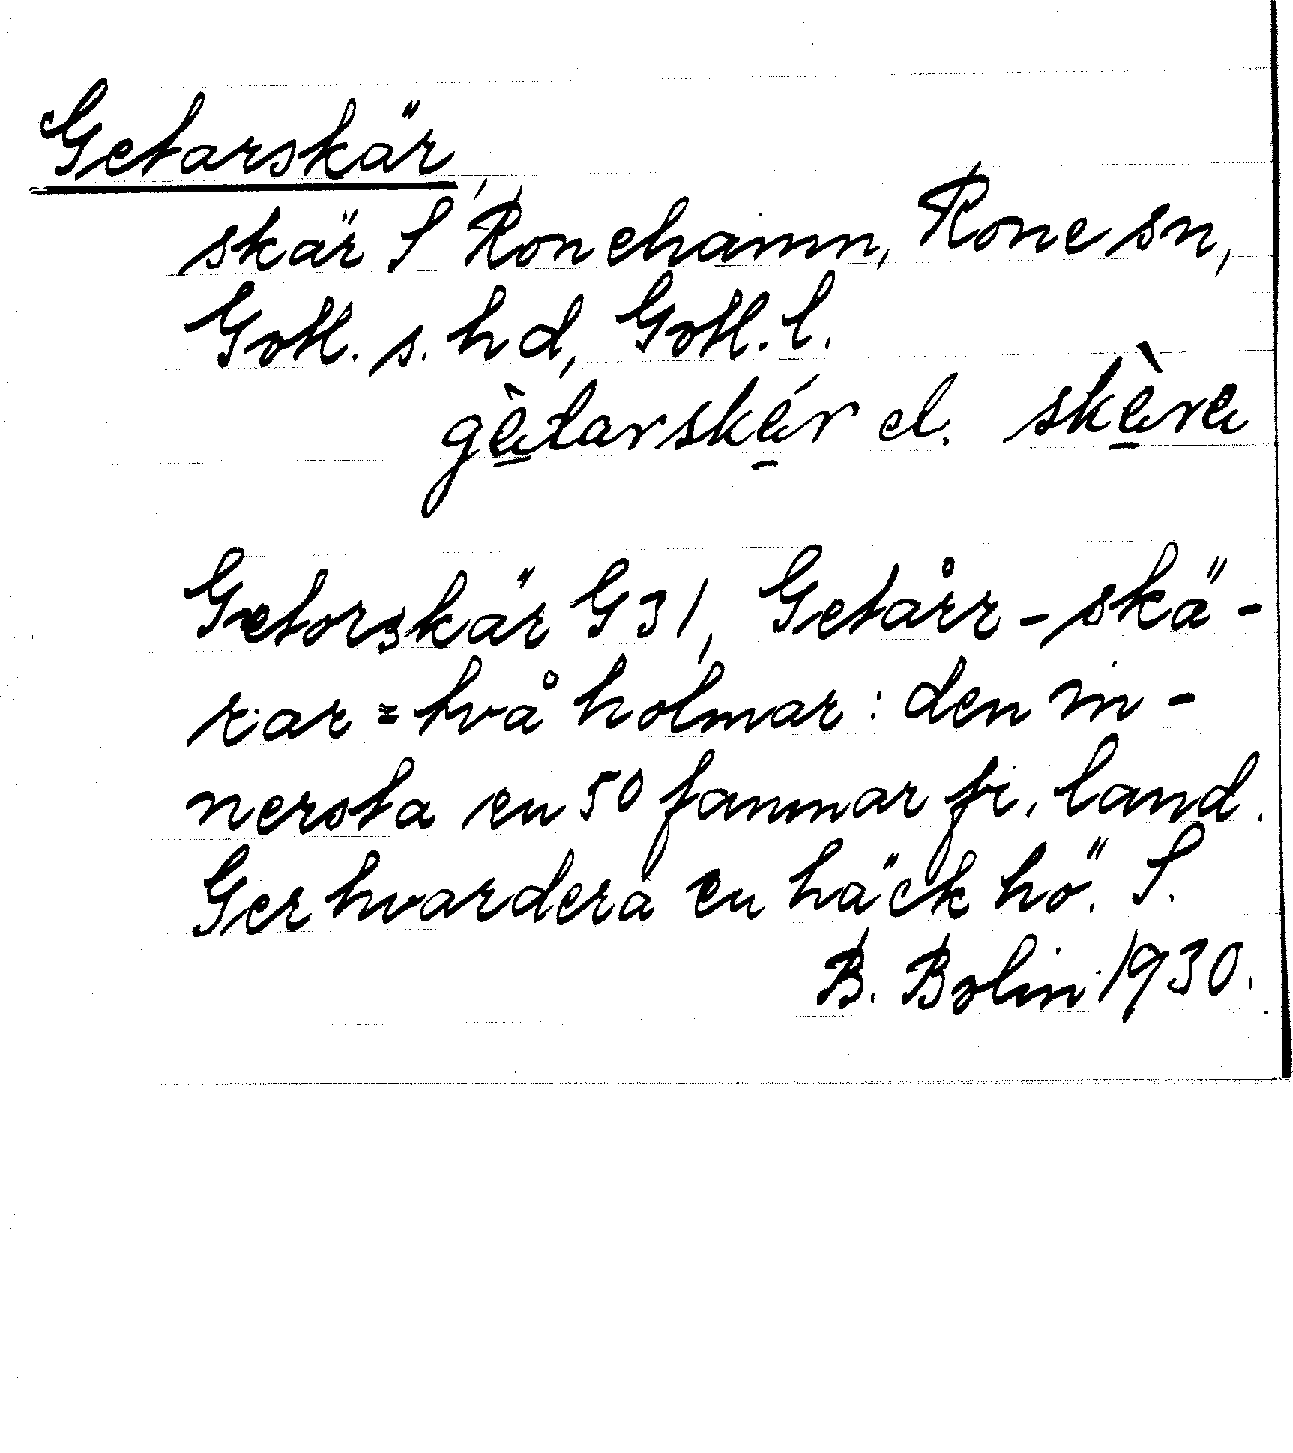 Getarskär,
skär S Ronehamn, Rone sn,
Gotl. s. hd, Gotl. l.
gä̀tarskä́r el. skä̀ra
Getorskär G31, Getårr-skä-
rar = två holmar: den in-
nersta en 50 famnar fr. land.
Ger hvardera en häck hö. S.
B. Bolin 1930.